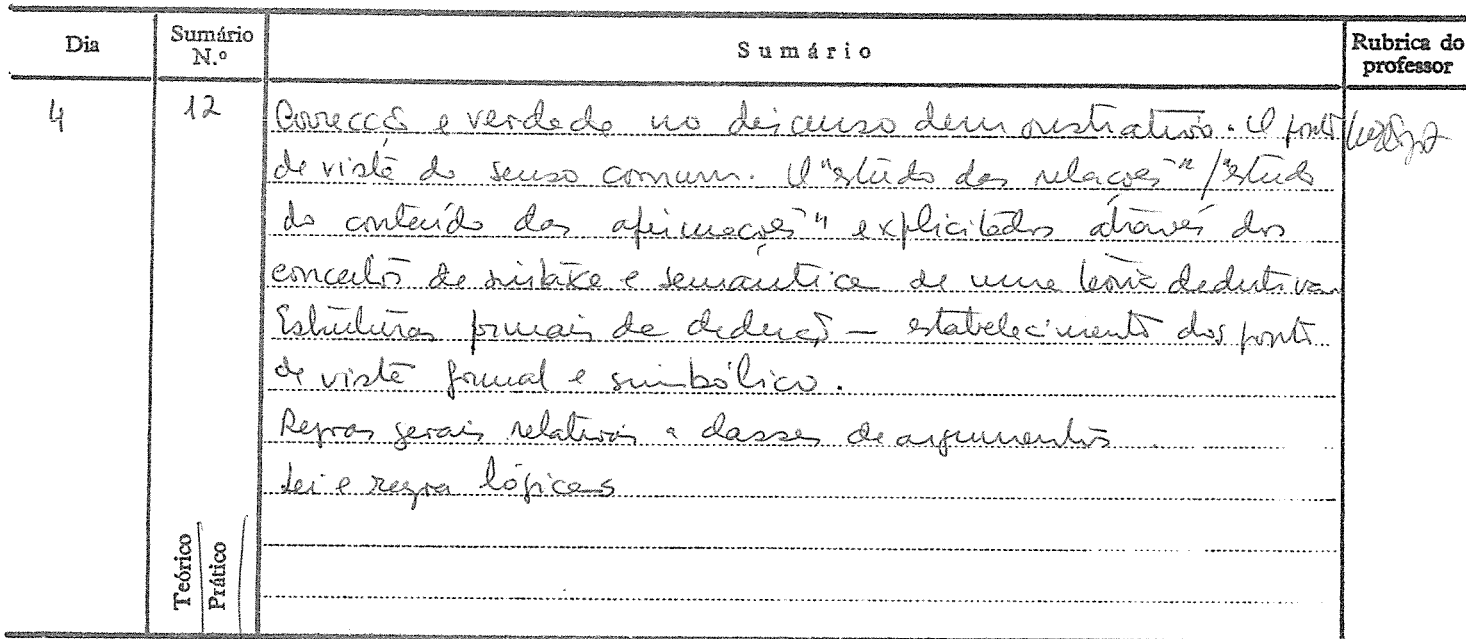 Dia Sumário N.º Sumário Rubrica do professor
4 12 Correcção e verdade no discurso demonstrativo. O ponto
de vista do senso comum. O "estudo das relações" / "estudo
do conteúdo das afirmações" explicitados através dos
conceitos de sintaxe e semântica de uma teoria dedutiva
Estruturas formais de dedução — estabelecimento dos pontos
de vista formal e simbólico.
Regras gerais relativas a classes de argumentos.
Lei e regra lógicas
Teórico
Prático